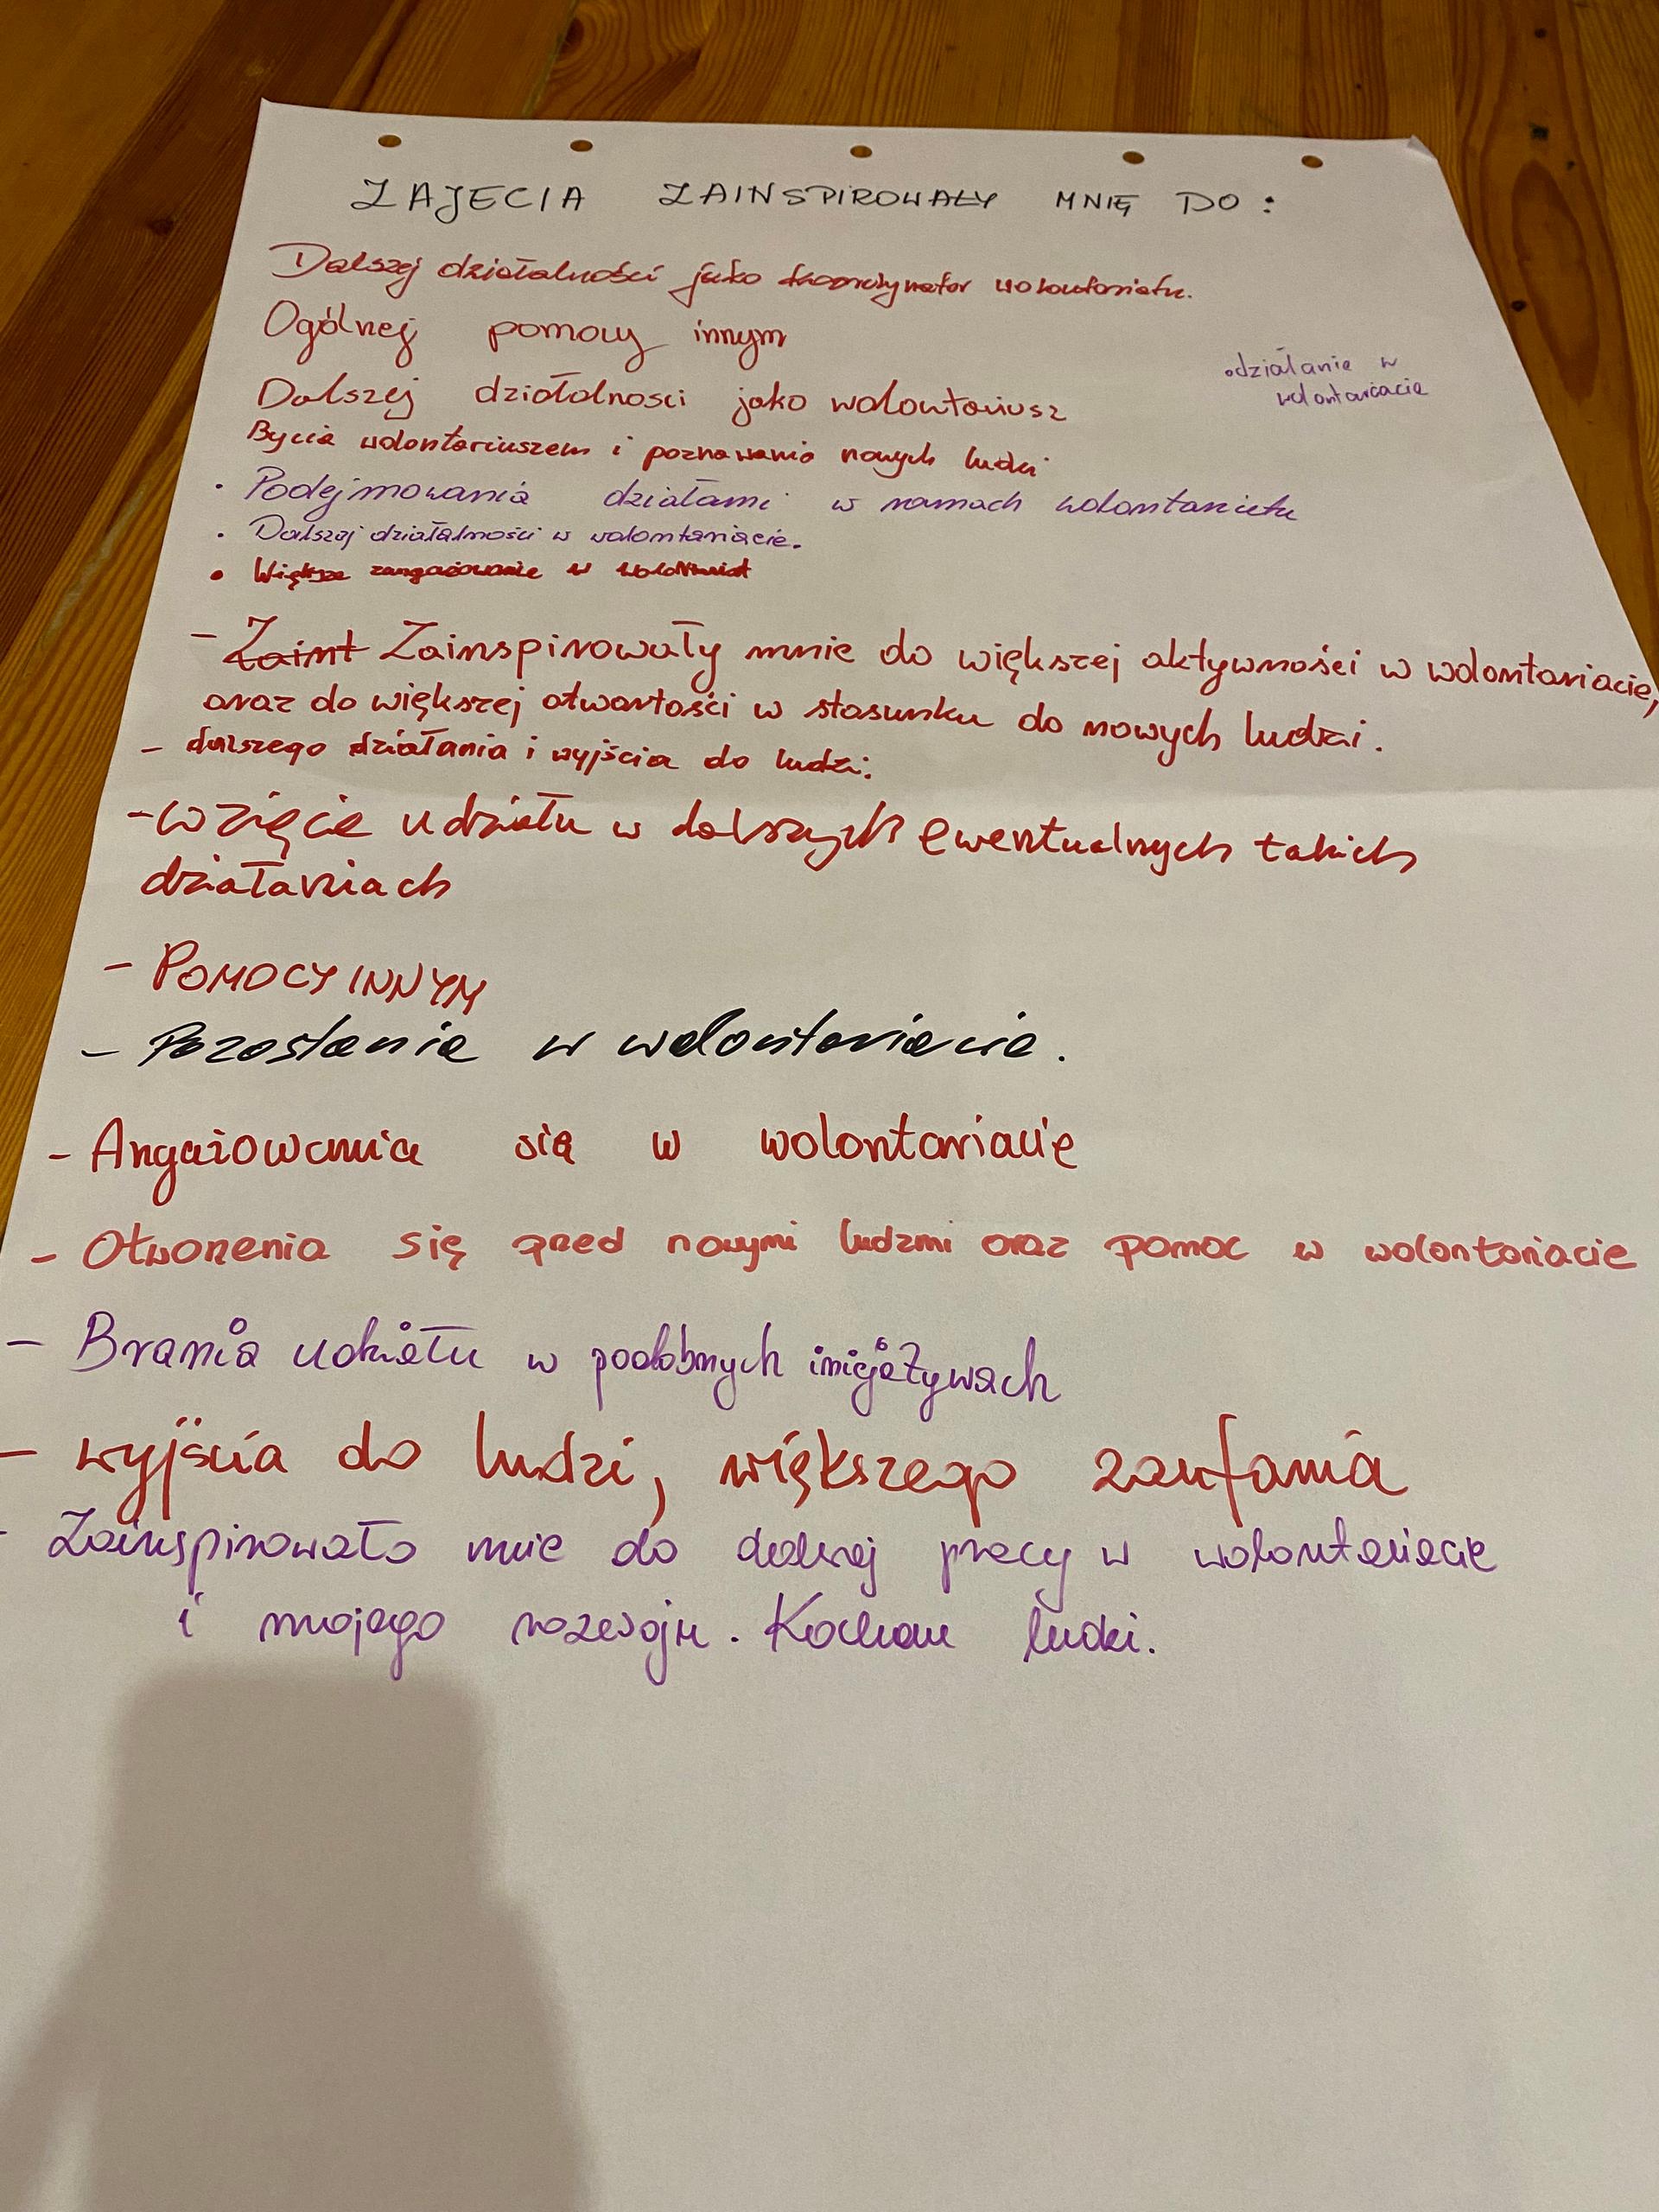 ZAJECIA ZAINSPIROWAŁY MNIĘ DO:
Dalszej działalności jako koordynator wolontariatu.
Ogólnej pomocy innym
•działanie w
wolontariacie
Dalszej działalnosci jako wolontariusz
Bycia wolontariuszem i poznawania nowych ludzi
• Podejmowania działami w ramach wolontariatu
• Dalszej działalności w wolontariacie.
• Większe zangażowanie w
- Zaint Zainspirowały mnie do większej aktywności w wolontariacie,
oraz do większej otwartości w stosunku do nowych ludzi.
- dalszego działania i wyjścia do ludzi.
- Wzięcie udziału w dalszych ewentualnych takich
działaniach
- POMOCY INNYM
- Pozostanie w wolontariacie.
- Angażowania się w wolontariacie
- Otworzenia się przed nowymi ludzmi oraz pomoc w wolontariacie
- Brania udziału w podobnych inicjatywach
- wyjścia do ludzi, większego zaufania
- Zainspirowało mnie do dalszej pracy w wolontariacie
i mojego rozwoju. Kocham ludzi.